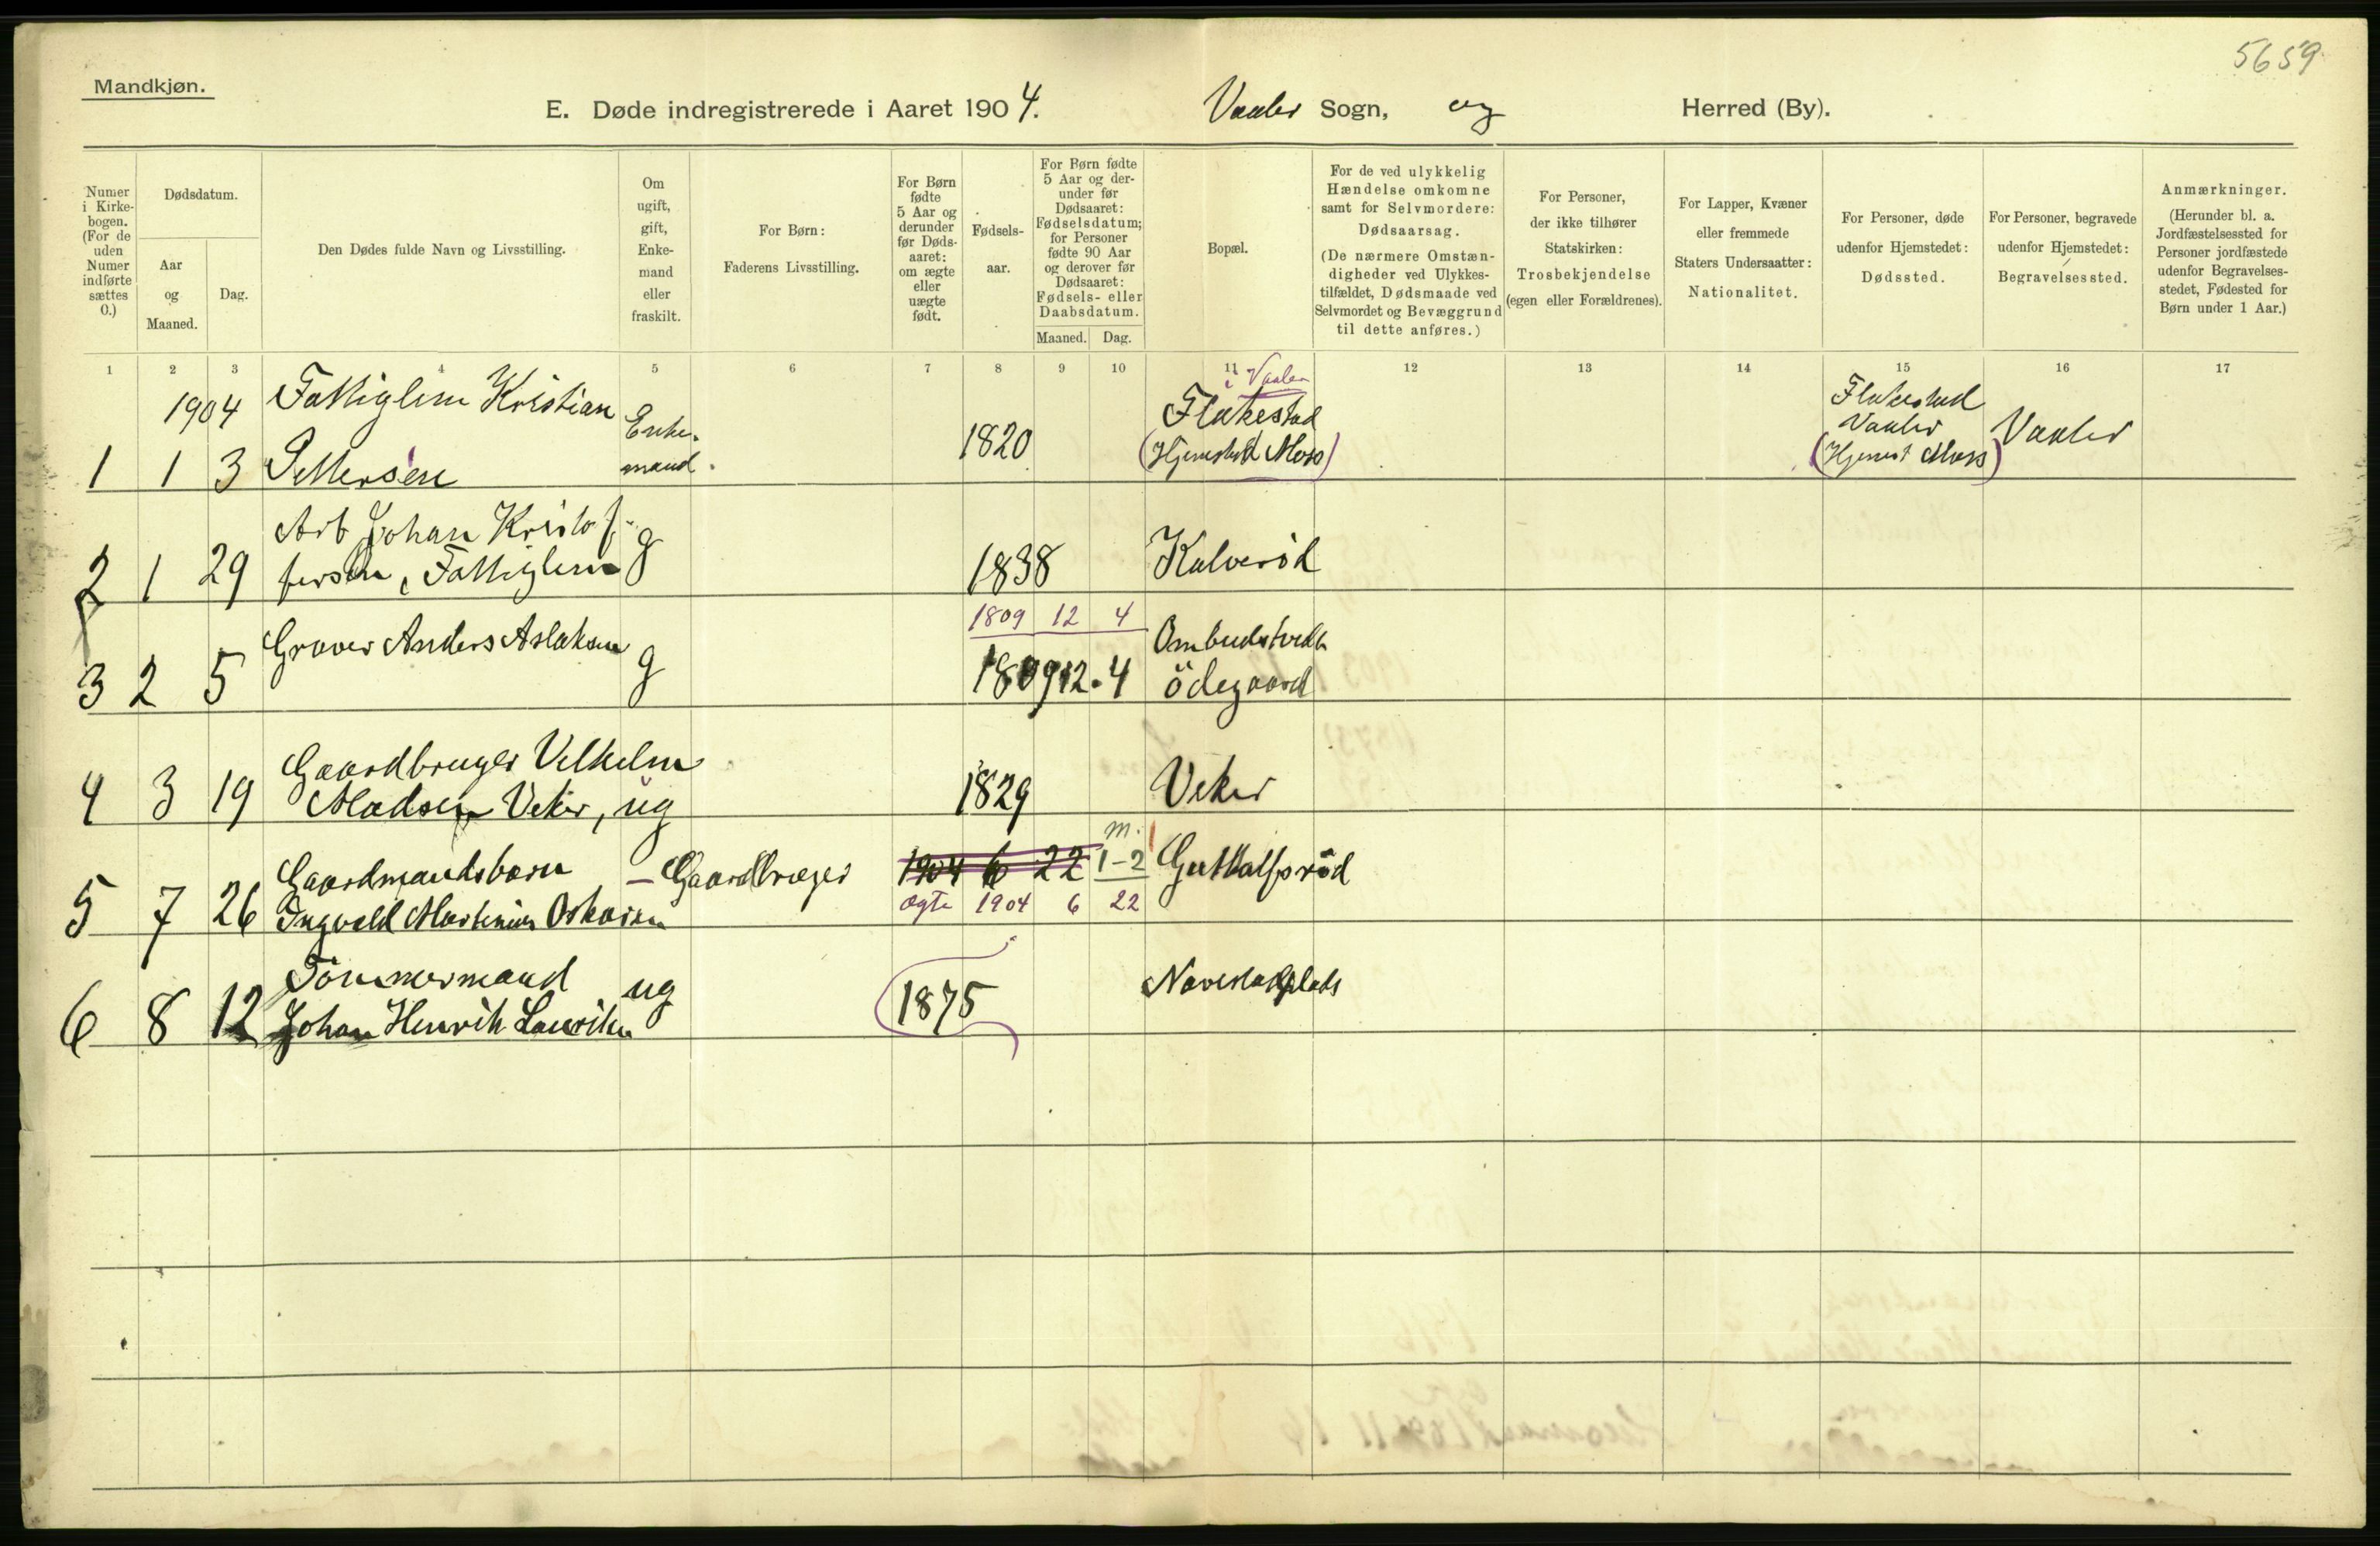 5659
Mandkjøn.
E. Døde indregistrerede i Aaret 1904. Vaaler Sogn, og Herred (By).
Numer i Kirke-bogen. (For de uden Numer indførte sættes 0.)
Dødsdatum.
Aar og Maaned.
Dag.
Den Dødes fulde Navn og Livsstilling.
Om ugift, gift, Enke-mand eller fraskilt.
For Børn: Faderens Livsstilling.
For Børn fødte 5 Aar og derunder før Døds-aaret: om ægte eller uægte født.
Fødsels-aar.
For Børn fødte 5 Aar og der-under før Dødsaaret: Fødselsdatum; for Personer fødte 90 Aar og derover før Dødsaaret: Fødsels- eller Daabsdatum.
Maaned. Dag.
Bopæl.
For de ved ulykkelig Hændelse omkomne samt for Selvmordere: Dødsaarsag.
(De nærmere Omstæn-digheder ved Ulykkes-tilfældet, Dødsmaade ved Selvmordet og Bevæggrund til dette anføres.)
For Personer, der ikke tilhører Statskirken: Trosbekjendelse (egen eller Forældrenes).
For Lapper, Kvæner eller fremmede Staters Undersaatter: Nationalitet.
For Personer, døde udenfor Hjemstedet: Dødssted.
For Personer, begravede udenfor Hjemstedet: Begravelsessted.
Anmærkninger.
(Herunder bl. a. Jordfæstelsessted for Personer jordfæstede udenfor Begravelses-stedet, Fødested for Børn under 1 Aar.)
1 2 3 4 5 6 7 8 9 10 11 12 13 14 15 16 17
i Vaaler
1904 Fattiglem Kristian Enke- Flakestad Flakestad
Vaaler
1 1 3 Pettersen mand. 1820 (Hjemsted Moss) (Hjemst Moss) Vaaler
Arb Johan Kristof-
2 1 29 fersen, Fattiglem g 1838 Kalverød
1809 12 4
Graver Anders Aslaksen Ombudstvedt
3 2 5 g 1809 12.4 ödegaard
Gaardbruger Vilhelm
4 3 19 Madsen Veker, ug 1829 Veker
m.
Gaardmandsbarn — Gaardbruger 1904 6 22 1-2
5 7 26 Ingvald Martinius Oskarsen ægte 1904 6 22
Tömmermand ug
6 8 12 Johan Henrik 1875